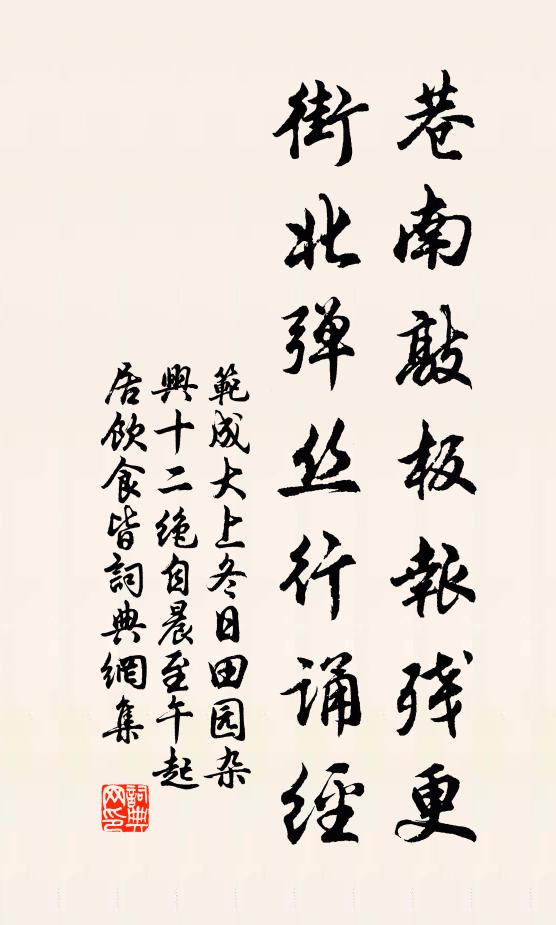 巷南敲板報残更
街北弹丝行诵經
範成大上冬日田园杂
興十二绝自晨至午起
居飲食皆詞典網集
詞典網印